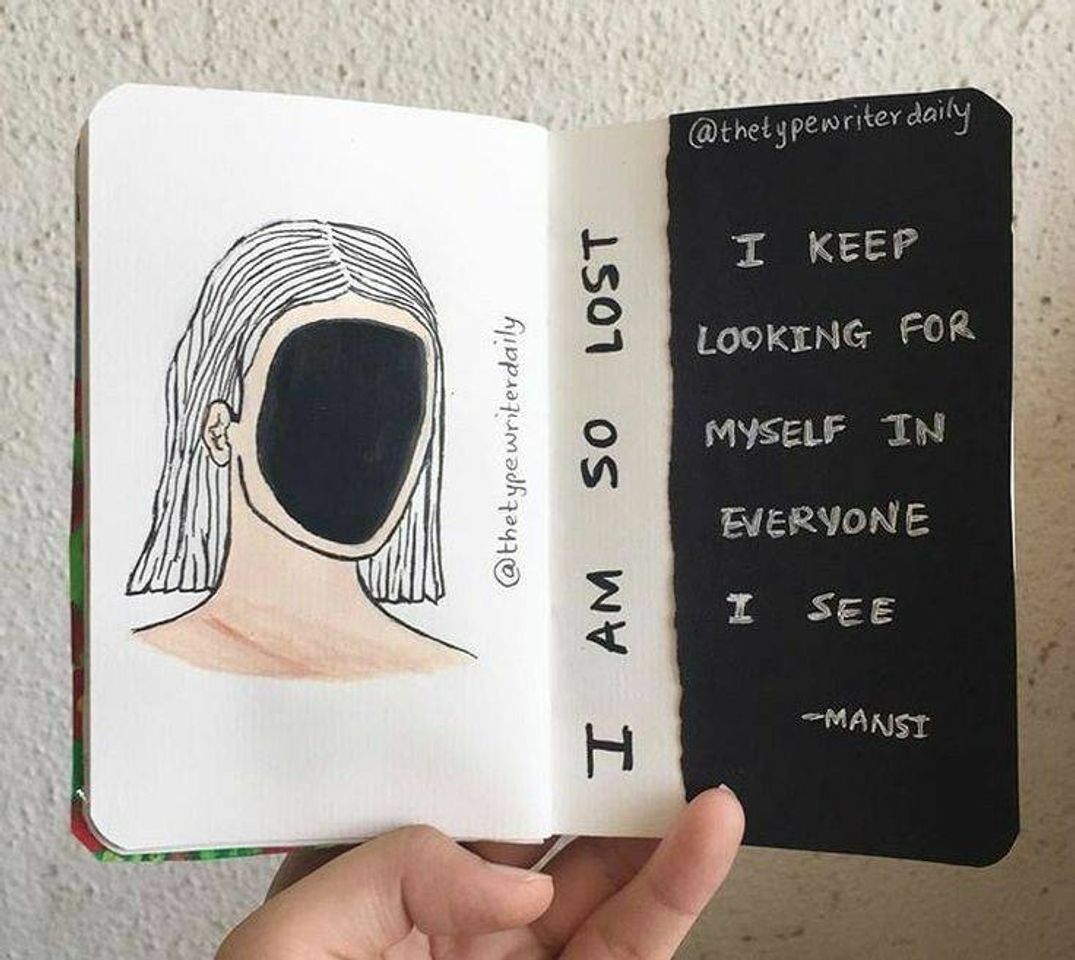 @thetypewriterdaily
I AM SO LOST
@thetypewriterdaily
I KEEP
LOOKING FOR
MYSELF IN
EVERYONE
I SEE
-MANSI